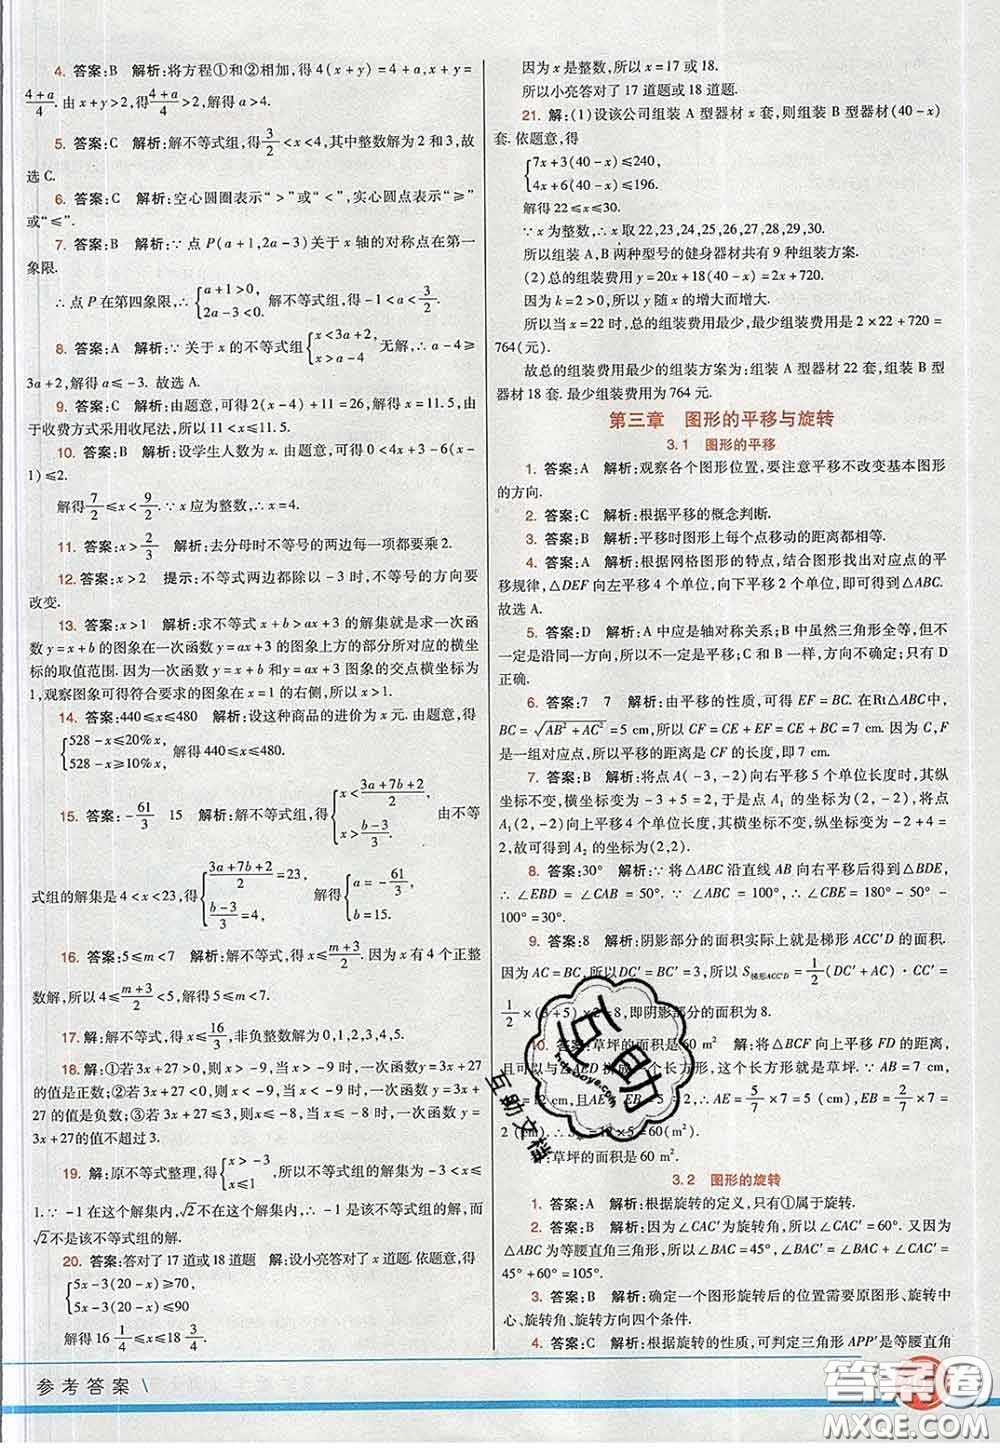 4. 答案:B 解析:将方程①和②相加,得 4(x+y)=4+a,x+y=
(4+a)/4. 由 x+y>2,得(4+a)/4>2,解得 a>4.
5. 答案:C 解析:解不等式组,得 3/2<x<4,其中整数解为 2 和 3,故
选 C.
6. 答案:C 解析:空心圆圈表示“>”或“<”,实心圆点表示“≥”
或“≤”.
7. 答案:B 解析:∵点 P(a+1,2a-3)关于 x 轴的对称点在第一
象限.
∴点 P 在第四象限,∴{a+1>0, 2a-3<0. 解不等式组,得 -1<a<3/2.
8. 答案:A 解析:∵关于 x 的不等式组{x<3a+2, x>a-4 无解,∴a-4≥
3a+2,解得 a≤-3. 故选 A.
9. 答案:C 解析:由题意,可得 2(x-4)+11=26,解得 x=11.5,由
于收费方式采用收尾法,所以 11<x≤11.5.
10. 答案:B 解析:设学生人数为 x. 由题意,得 0≤4x+3-6(x-
1)≤2.
解得 7/2≤x<9/2. ∵x 应为整数,∴x=4.
11. 答案:x>2/3 解析:去分母时不等号的两边每一项都要乘2.
12. 答案:x>2 提示:不等式两边都除以-3时,不等号的方向要
改变.
13. 答案:x>1 解析:求不等式 x+b>ax+3 的解集就是求一次函
数 y=x+b 的图象在一次函数 y=ax+3 的图象上方的部分所对应的横坐
标的取值范围. 因为一次函数 y=x+b和y=ax+3 图象的交点横坐标为
1,观察图象可得符合要求的图象在 x=1 的右侧,所以 x>1.
14. 答案:440≤x≤480 解析:设这种商品的进价为 x 元. 由题意,得
{528-x≤20%x, 528-x≥10%x, 解得 440≤x≤480.
15. 答案:-61/3 15 解析:解不等式组,得{x<(3a+7b+2)/2, x>(b-3)/3. 由不等
式组的解集是 4<x<23,得{(3a+7b+2)/2=23, (b-3)/3=4, 解得{a=-61/3, b=15.
16. 答案:5≤m<7 解析:解不等式,得 x≤(m+3)/2. 因为 x 有 4 个正整
数解,所以 4≤(m+3)/2<5,解得 5≤m<7.
17. 解:解不等式,得 x≤16/3,非负整数解为 0,1,2,3,4,5.
18. 解:①若 3x+27>0,则 x>-9,当 x>-9 时,一次函数 y=3x+27
的值是正数;②若 3x+27<0,则 x<-9,当 x<-9 时,一次函数 y=3x+
27的值是负数;③若 3x+27≤3,则 x≤-8,当 x≤-8 时,一次函数 y=
3x+27的值不超过3.
19. 解:原不等式整理,得{x>-3, x≤1, 所以不等式组的解集为-3<x≤
1. ∵-1 在这个解集内,√2不在这个解集内,∴-1 是该不等式组的解,而
√2不是该不等式组的解.
20. 答案:答对了 17 道或 18 道题 解:设小亮答对了 x 道题. 依题意,得
{5x-3(20-x)≥70, 5x-3(20-x)≤90
解得 16 1/4≤x≤18 3/4.
因为 x 是整数,所以 x=17 或 18.
所以小亮答对了 17 道题或 18 道题.
21. 解:(1)设该公司组装 A 型器材 x 套,则组装 B 型器材(40-x)
套. 依题意,得
{7x+3(40-x)≤240, 4x+6(40-x)≤196.
解得 22≤x≤30.
∵x 为整数,∴x 取 22,23,24,25,26,27,28,29,30.
所以组装 A,B 两种型号的健身器材共有 9 种组装方案.
(2)总的组装费用 y=20x+18(40-x)=2x+720.
因为 k=2>0,所以 y 随 x 的增大而增大.
所以当 x=22 时,总的组装费用最少,最少组装费用是 2×22+720=
764(元).
故总的组装费用最少的组装方案为:组装 A 型器材 22 套,组装 B
型器材 18 套. 最少组装费用为 764 元.
第三章 图形的平移与旋转
3.1 图形的平移
1. 答案:A 解析:观察各个图形位置,要注意平移不改变基本图形
的方向.
2. 答案:C 解析:根据平移的概念判断.
3. 答案:B 解析:平移时图形上每个点移动的距离都相等.
4. 答案:A 解析:根据网格图形的特点,结合图形找出对应点的平
移规律,△DEF 向左平移 4 个单位,向下平移 2 个单位,即可得到△ABC.
故选 A.
5. 答案:D 解析:A 中应是轴对称关系;B 中虽然三角形全等,但不
一定是沿同一方向,距离也不一定相等;C 和 B 一样,方向不确定;只有 D
正确.
6. 答案:7 7 解析:由平移的性质,可得 EF=BC. 在Rt△ABC中,
BC=√(AB²+AC²)=5 cm,所以 CF=CE+EF=CE+BC=7 cm. 因为 C,F
是一组对应点,所以平移的距离是 CF 的长度,即 7 cm.
7. 答案:B 解析:将点 A(-3,-2)向右平移 5 个单位长度时,其纵
坐标不变,横坐标变为 -3+5=2,于是点 A₁ 的坐标为(2,-2),将点
A₁(2,-2)向上平移 4 个单位长度,其横坐标不变,纵坐标变为 -2+4=
2,故可得到 A₂ 的坐标为(2,2).
8. 答案:30° 解析:∵将△ABC 沿直线 AB 向右平移后得到△BDE,
∴∠EBD=∠CAB=50°. ∵∠ABC=100°,∴∠CBE=180°-50°-
100°=30°.
9. 答案:8 解析:阴影部分的面积实际上就是梯形 ACC′D 的面积.
因为 AC=BC,所以DC′=BC′=3,所以 S梯形ACC′D=1/2(DC′+AC)·CC′=
1/2×(3+5)×2=8,即阴影部分的面积为 8.
10. 答案:草坪的面积是60 m² 解:将△BCF 向上平移 FD 的距离,
且可以与△AED 拼成一个长方形,这个长方形就是草坪. ∵AB=7 cm,
=12 cm,且AE AE=5/7×7=5(cm),EB=2/7×7=
2 (cm). 12×5=60(m²).
草坪的面积是 60 m².
3.2 图形的旋转
1. 答案:A 解析:根据旋转的定义,只有①属于旋转.
2. 答案:B 解析:因为∠CAC′为旋转角,所以∠CAC′=60°. 又因为
△ABC 为等腰直角三角形,所以∠BAC=45°,∠BAC′=∠BAC+∠CAC′=
45°+60°=105°.
3. 答案:B 解析:确定一个图形旋转后的位置需要原图形、旋转中
心、旋转角、旋转方向四个条件.
4. 答案:C 解析:根据旋转的性质,可判定三角形 APP′是等腰直角
参考答案
互助
互助文档
答案圈
MXQE.COM